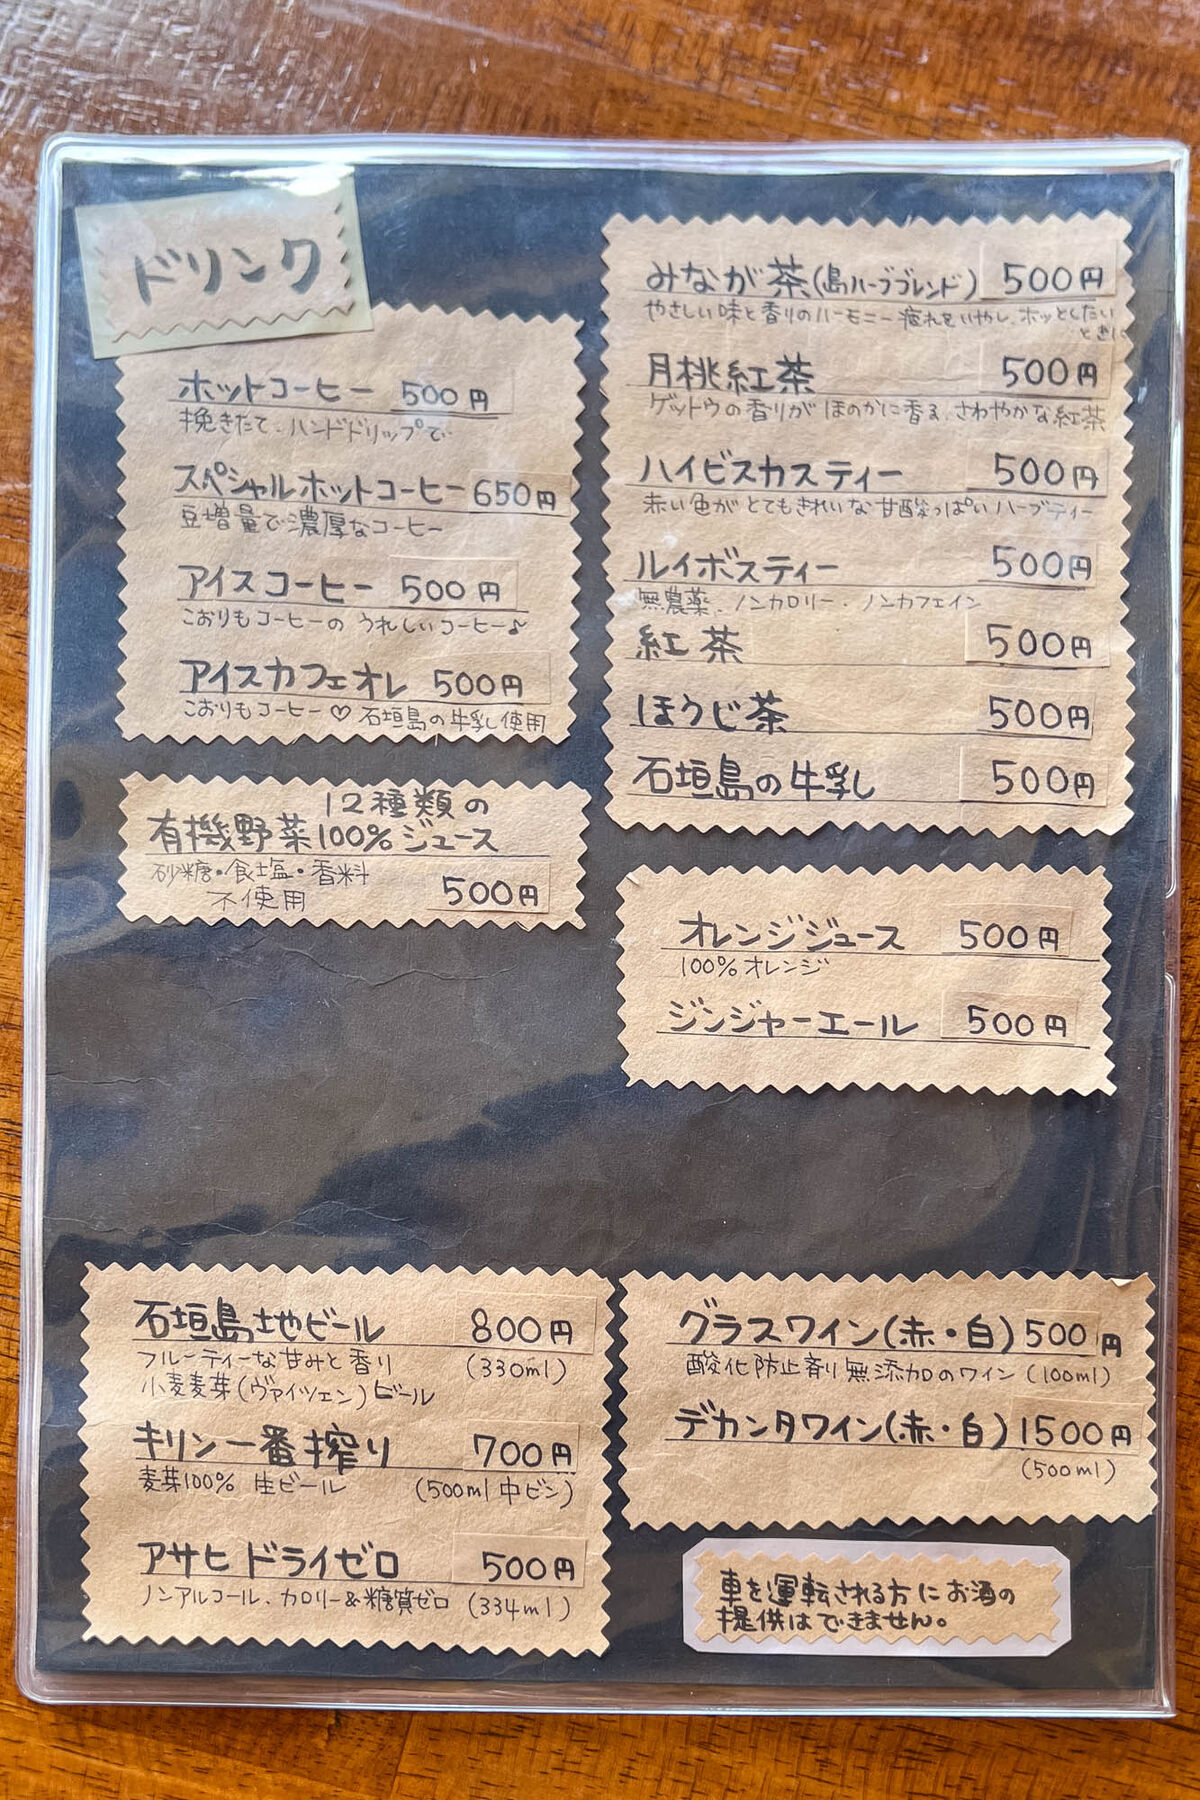 ドリンク
ホットコーヒー 500円
挽きたて、ハンドドリップで…
スペシャルホットコーヒー 650円
豆増量で濃厚なコーヒー
アイスコーヒー 500円
こおりもコーヒーの うれしいコーヒー♪
アイスカフェオレ 500円
こおりもコーヒー♡ 石垣島の牛乳使用
12種類の
有機野菜100%ジュース
砂糖・食塩・香料
不使用 500円
みなが茶(島ハーブブレンド) 500円
やさしい味と香りのハーモニー 疲れをいやし、ホッとしたい
ときに
月桃紅茶 500円
ゲットウの香りが ほのかに香る、さわやかな紅茶
ハイビスカスティー 500円
赤い色が とてもきれいな 甘酸っぱい ハーブティー
ルイボスティー 500円
無農薬、ノンカロリー・ノンカフェイン
紅茶 500円
ほうじ茶 500円
石垣島の牛乳 500円
オレンジジュース 500円
100%オレンジ
ジンジャーエール 500円
石垣島地ビール 800円
フルーティーな甘みと香り (330ml)
小麦麦芽(ヴァイツェン)ビール
キリン一番搾り 700円
麦芽100% 生ビール (500ml中ビン)
アサヒ ドライゼロ 500円
ノンアルコール、カロリー&糖質ゼロ (334ml)
グラスワイン(赤・白) 500円
酸化防止剤無添加のワイン (100ml)
デカンタワイン(赤・白) 1500円
(500ml)
車を運転される方にお酒の
提供はできません。